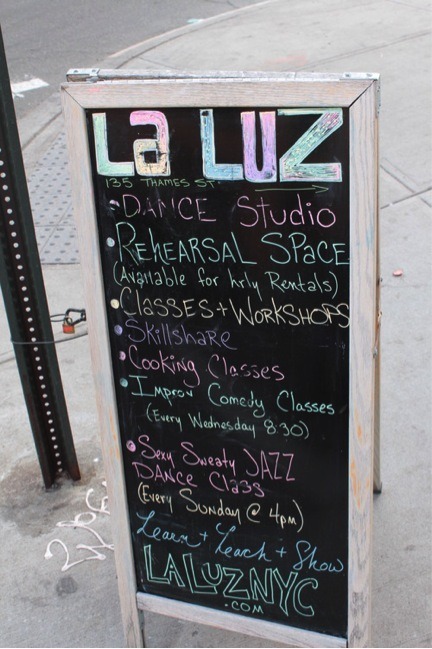 La LUZ
135 THAMES ST.
DANCE Studio
REHEARSAL SPACE
(Available for hrly Rentals)
CLASSES + WORKSHOPS
Skillshare
Cooking Classes
Improv Comedy Classes
(Every Wednesday 8:30)
Sexy Sweaty JAZZ
DANCE Class
(Every Sunday @ 4pm)
Learn + Teach + Show
LALUZNYC
.COM